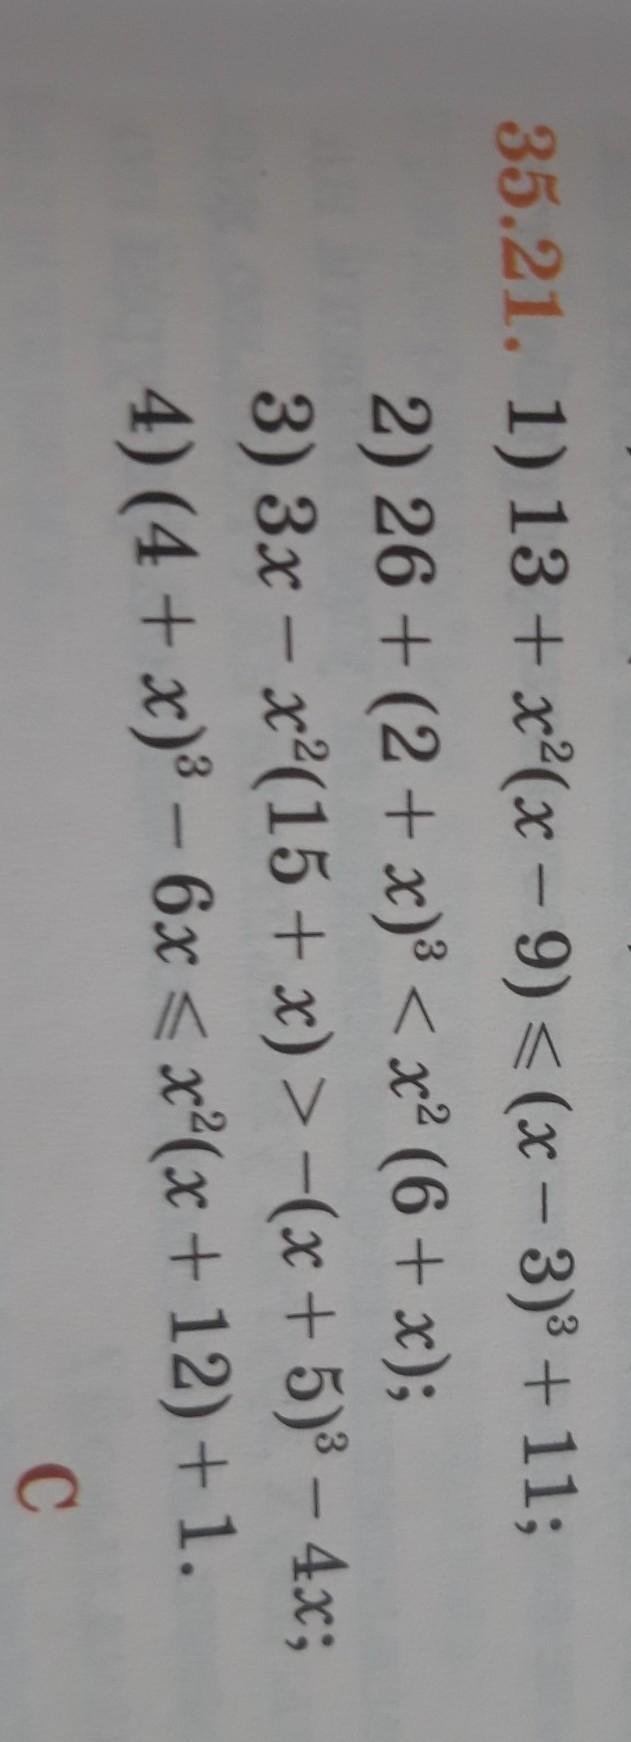 35.21. 1) 13 + x²(x − 9) ⩽ (x − 3)³ + 11;
2) 26 + (2 + x)³ < x² (6 + x);
3) 3x − x²(15 + x) > −(x + 5)³ − 4x;
4) (4 + x)³ − 6x ⩽ x²(x + 12) + 1.
C